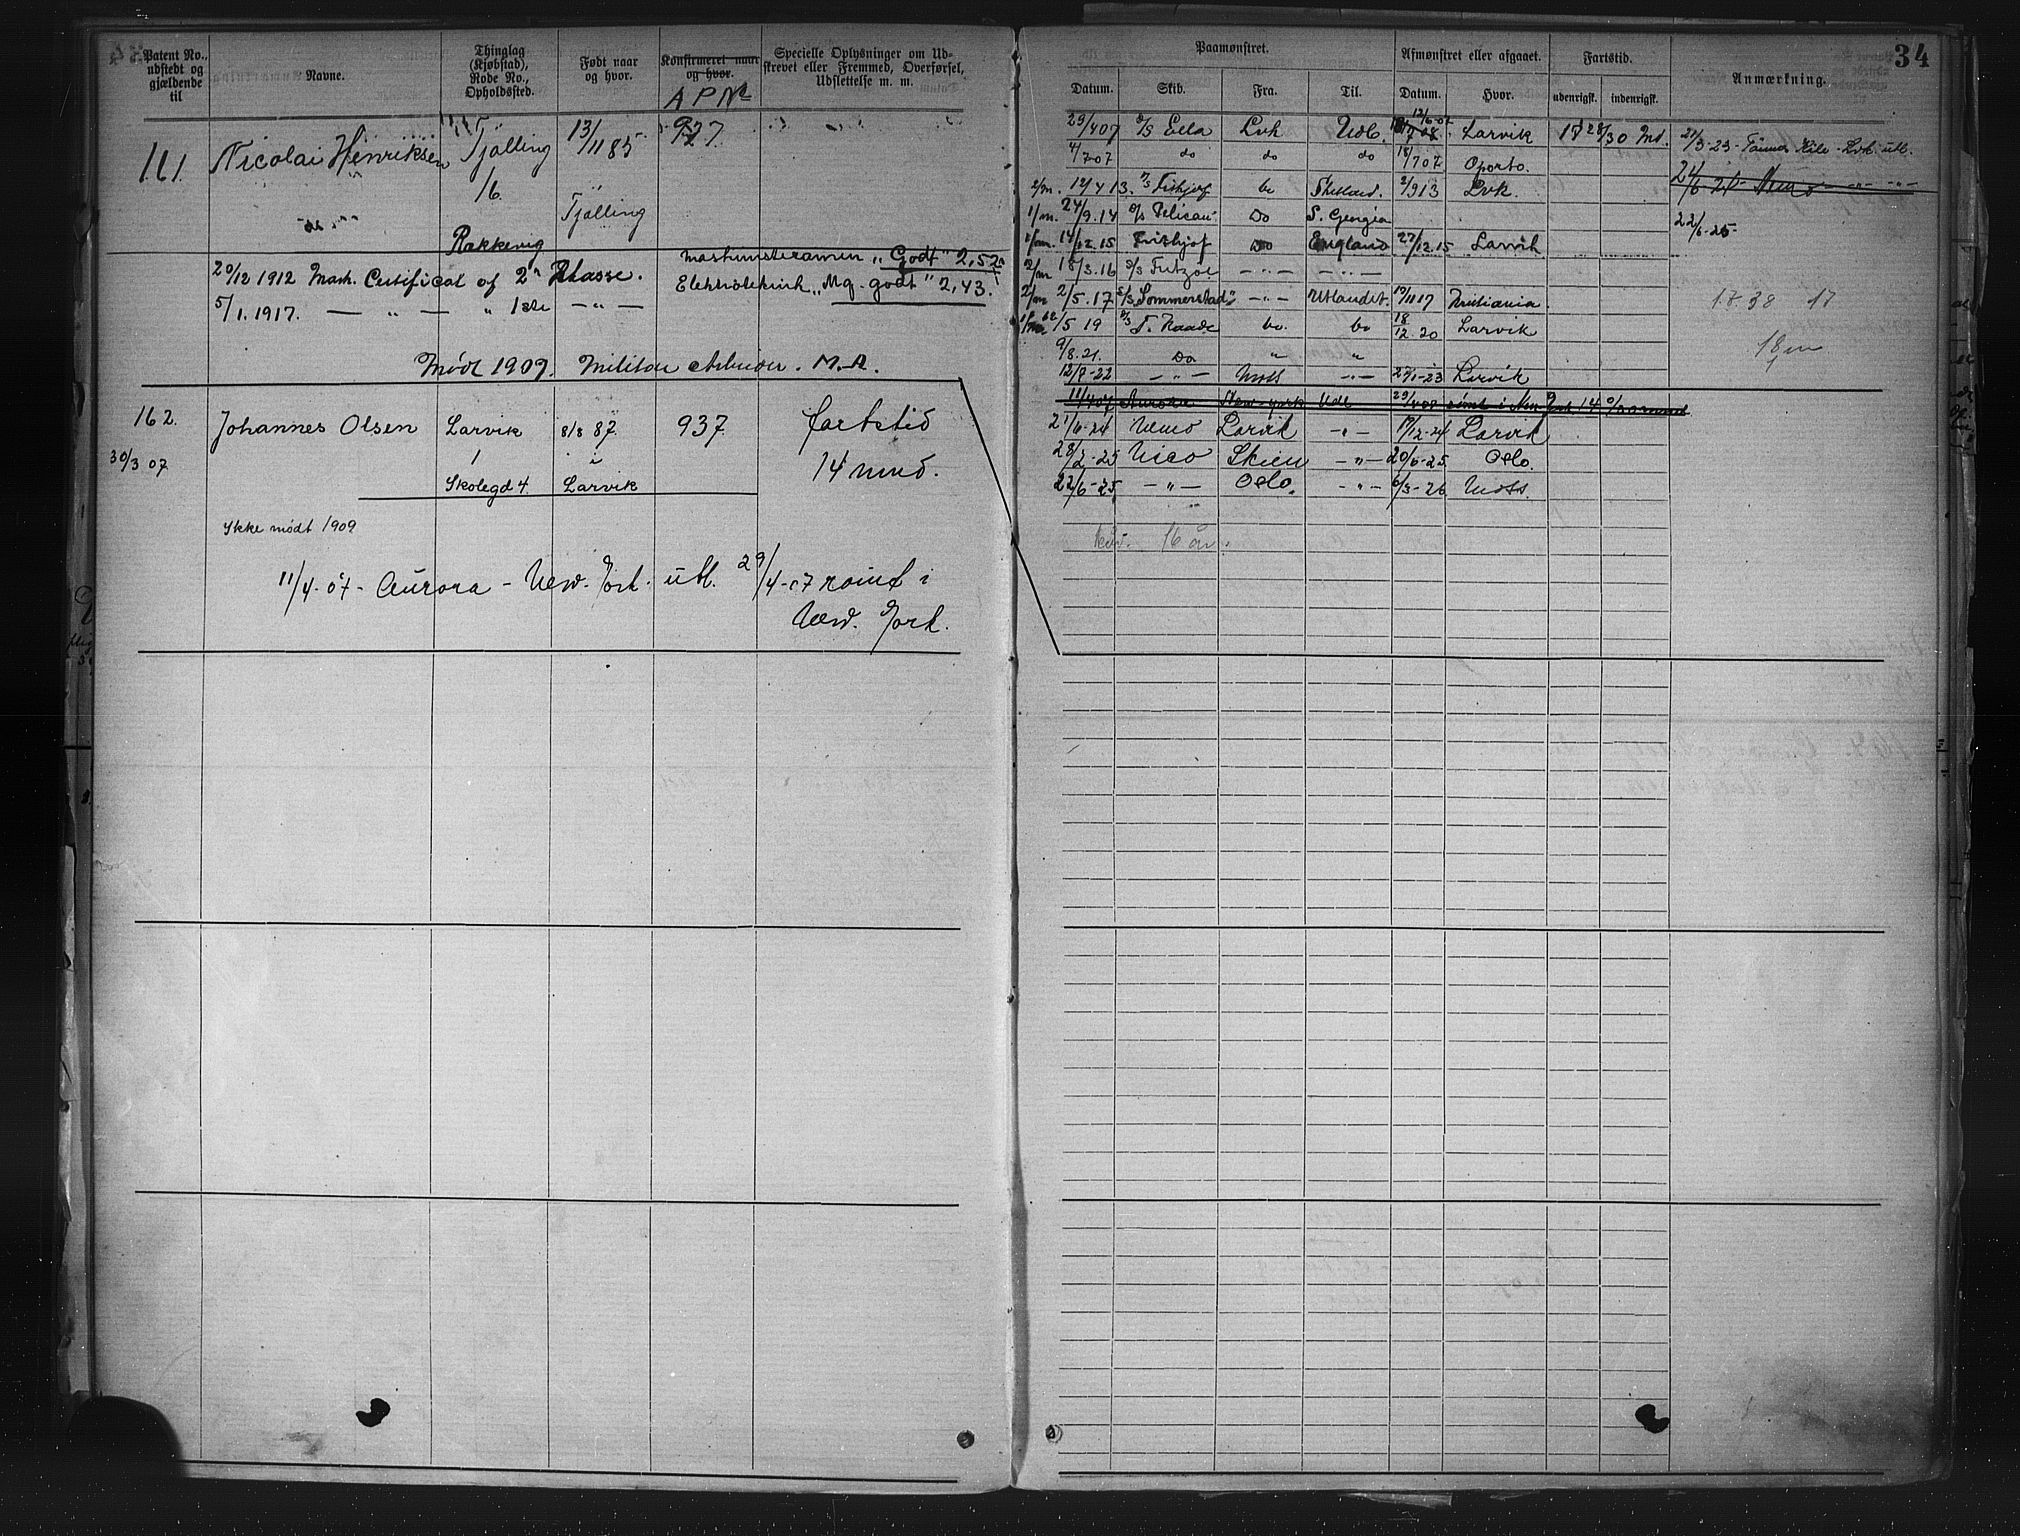 Patent No., udstedt og gjældende til
Navne.
Thinglag (Kjøbstad), Rode No., Opholdssted.
Født naar og hvor.
Konfirmeret naar og hvor.
A P No
Specielle Oplysninger om Udstrevet eller Fremmed, Overførsel, Udslettelse m. m.
161.
Nicolai Henriksen
Tjølling
16.
Rakkevig
13/11 85.
Tjølling
927.
20/12 1912 Mask. Certificat af 2n Klasse.
Maskinisteramen „Godt" 2,52
5/1. 1917. — „ — „ 1ste — „ —
Elektroteknik „Mg. godt" 2,43.
Mødt 1909. Militær Arbeider. M.A.
162.
30/3 07
Johannes Olsen
Larvik
1
Skolegd 4.
8/8 87.
i
Larvik
937.
fartstid
14 mnd.
Ikke mødt 1909
11/4-07 - Aurora - New. York. utl. 29/4-07 rømt i
New. York.
34
Paamønstret.
Afmønstret eller afgaaet.
Fartstid.
Anmærkning.
Datum. Skib. Fra. Til. Datum. Hvor. udenrigsk. indenrigsk.
29/4 07 D/S Eela Lvk Udl. 12/6-07 Larvik 17 28/30 Md.
4/7 07 do do do 18/7 07 Oporto.
2/m. 12/4 13. D/S Frithjof do Shetland. 2/9 13 Lvk.
1/m. 24/9.14 D/S Pelican. Do S. Georgia
1/m. 14/12.15 Frithjof Do England 27/12.15 Larvik
2/m 18/3.16 S/S Fritzøe — „ — — „ —
2/m 2/5.17 S/S Sommerstad — „ — Utlandet. 19/11 17 Kristiania.
/5 19 D/S T. Naade do. do 18/12.20 Larvik
9/8.21. Do „ „
12/8-22 — „ — Moss — „ — 25/1-23 Larvik
11/4 07 Aurora New-york Udl 29/4 07 rømt i New York 14
21/6-24 Nemo Larvik — „ — 17/12-24 Larvik
28/2-25 Nico Skien — „ — 20/6-25. Oslo.
22/6-25. — „ — Oslo. — „ — 6/3-26 Moss.
16 år.
21/3-23- Lvk. utl.
24/6-24- Nemo — „ —
22/6-25-
17 38 17
18 m